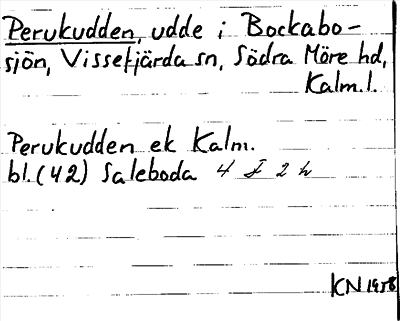 Perukudden, udde i Bockabo-
sjön, Vissefjärda sn, Södra Möre hd,
Kalm.l.
Perukudden ek Kalm.
bl.(42) Saleboda 4 f 2 h
KN 1958